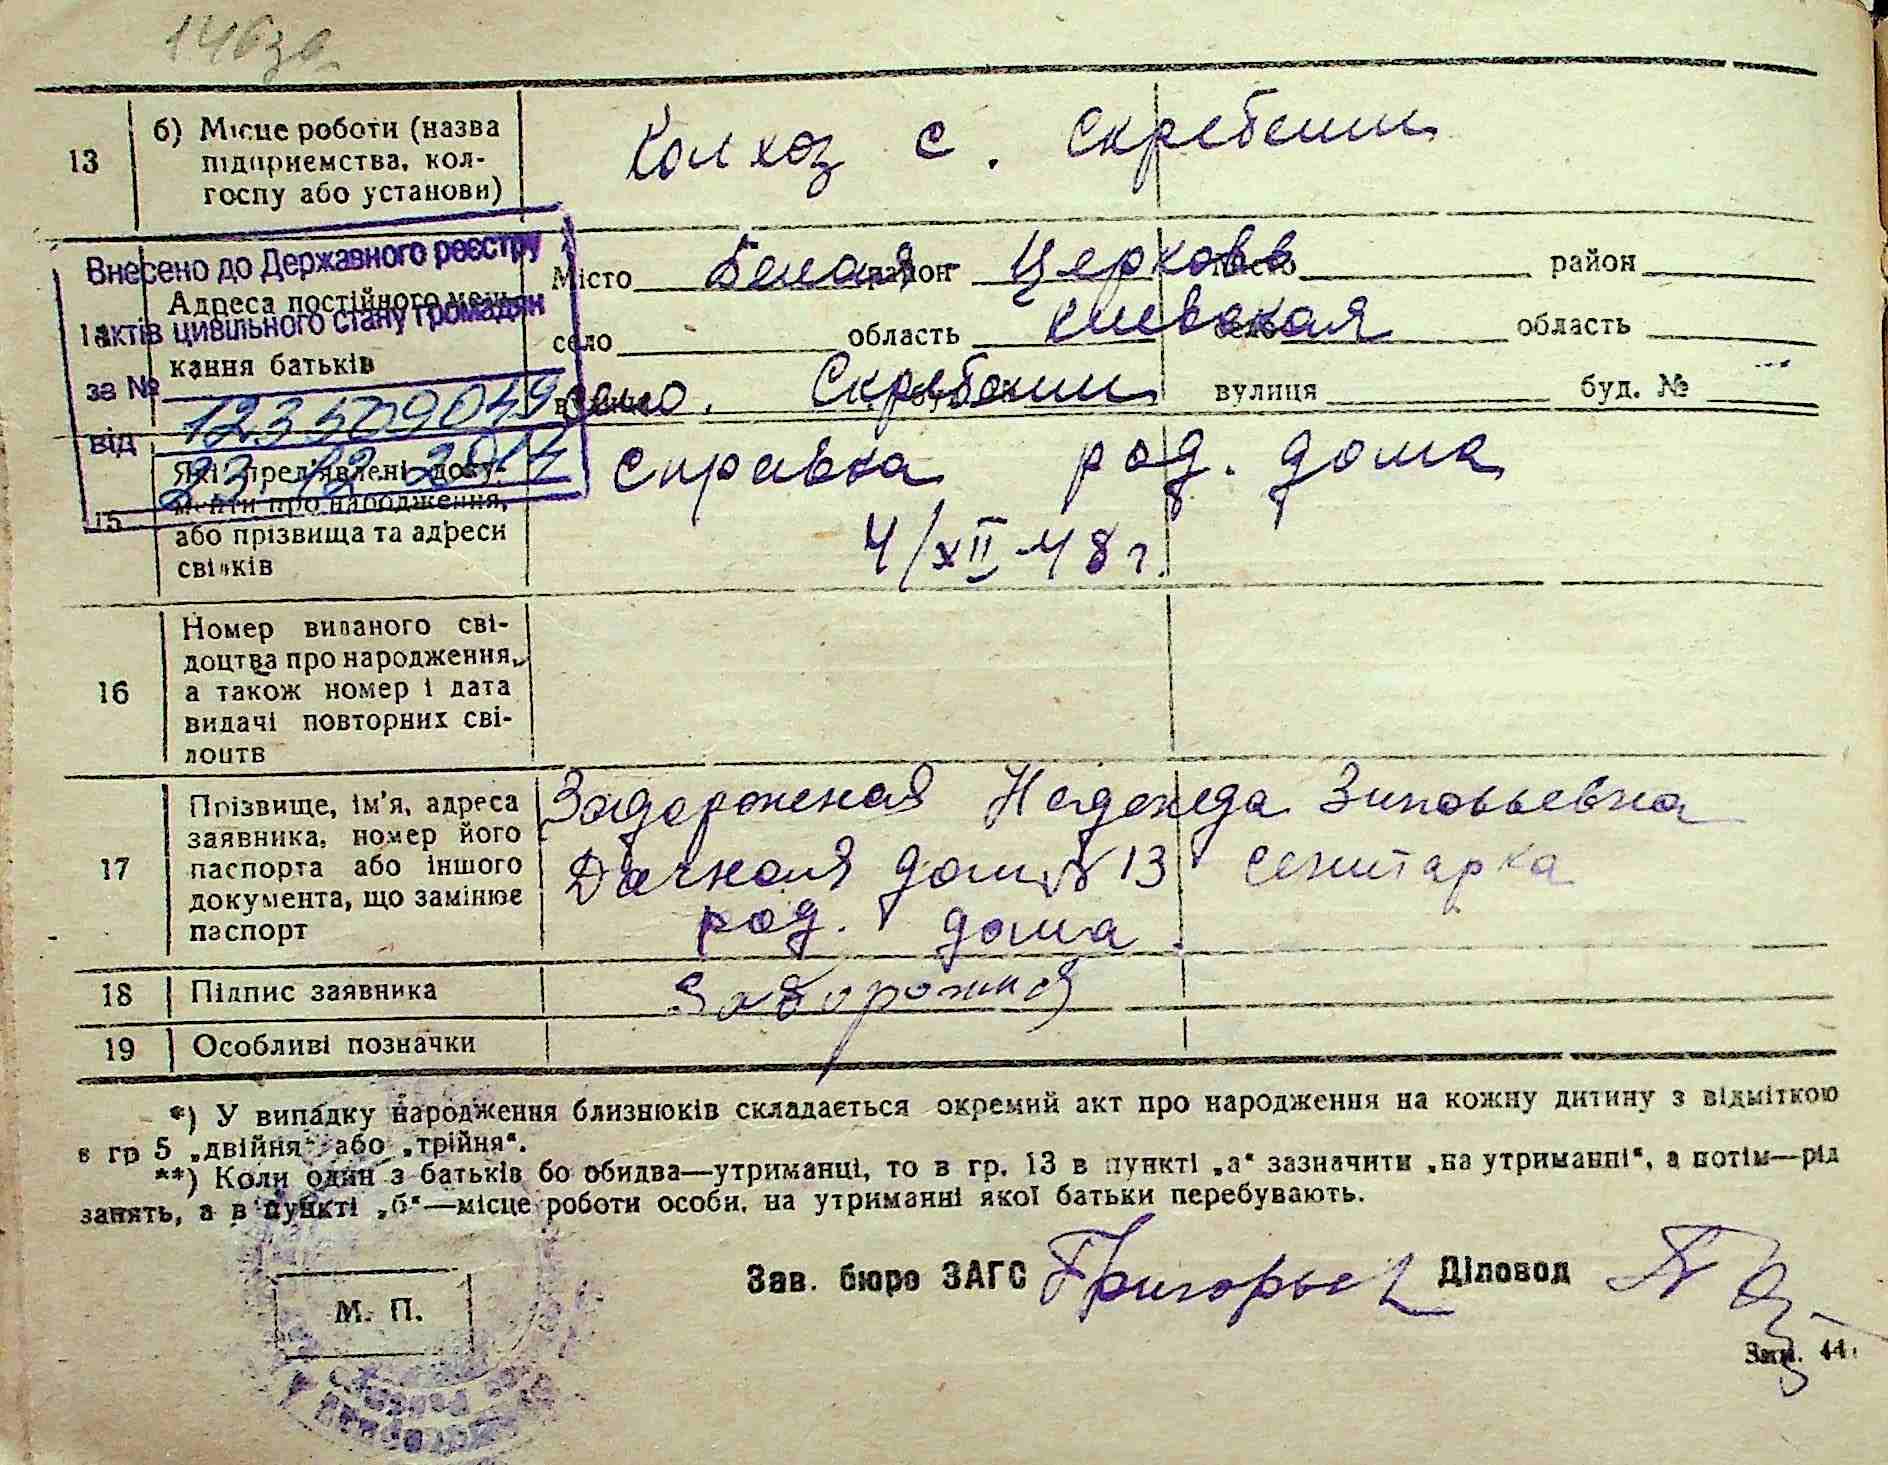 146зв.
13 б) Місце роботи (назва
підприємства, кол-
госпу або установи)
Колхоз с. Скребеши
Внесено до Державного реєстру
актів цивільного стану громадян
за №
від
Адреса постійного меш-
кання батьків
Місто Белая район Церковь місто район
село область киевская село область
село. Скребеши вулиця буд. №
15 Які пред'явлені доку-
менти про народження,
або прізвища та адреси
свідків
Справка род. дома
4/XII-48 г.
16 Номер виданого сві-
доцтва про народження,
а також номер і дата
видачі повторних сві-
доцтв
17 Прізвище, ім'я, адреса
заявника, номер його
паспорта або іншого
документа, що замінює
паспорт
Задорожная Надежда Зиновьевна
Дачная дом № 13 санитарка
род. дома.
18 Підпис заявника
Задорожная
19 Особливі позначки
*) У випадку народження близнюків складається окремий акт про народження на кожну дитину з відміткою
в гр 5 „двійня“ або „трійня“.
**) Коли один з батьків бо обидва—утриманці, то в гр. 13 в пункті „а“ зазначити „на утриманні“, а потім—рід
занять, а в пункті „б“—місце роботи особи, на утриманні якої батьки перебувають.
Зав. бюро ЗАГС Діловод
М. П.
Зам. 44